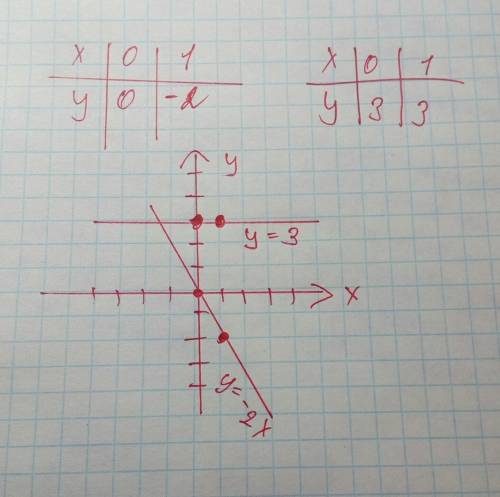 x 0 1
y 0 -2
x 0 1
y 3 3
y
y = 3
x
y = -2x